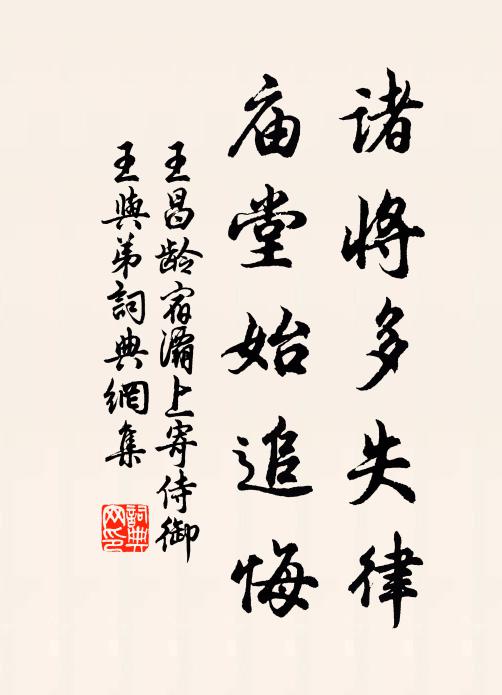 诸将多失律
庙堂始追悔
王昌龄宿灞上寄侍御
王玙弟詞典網集
詞典
网印